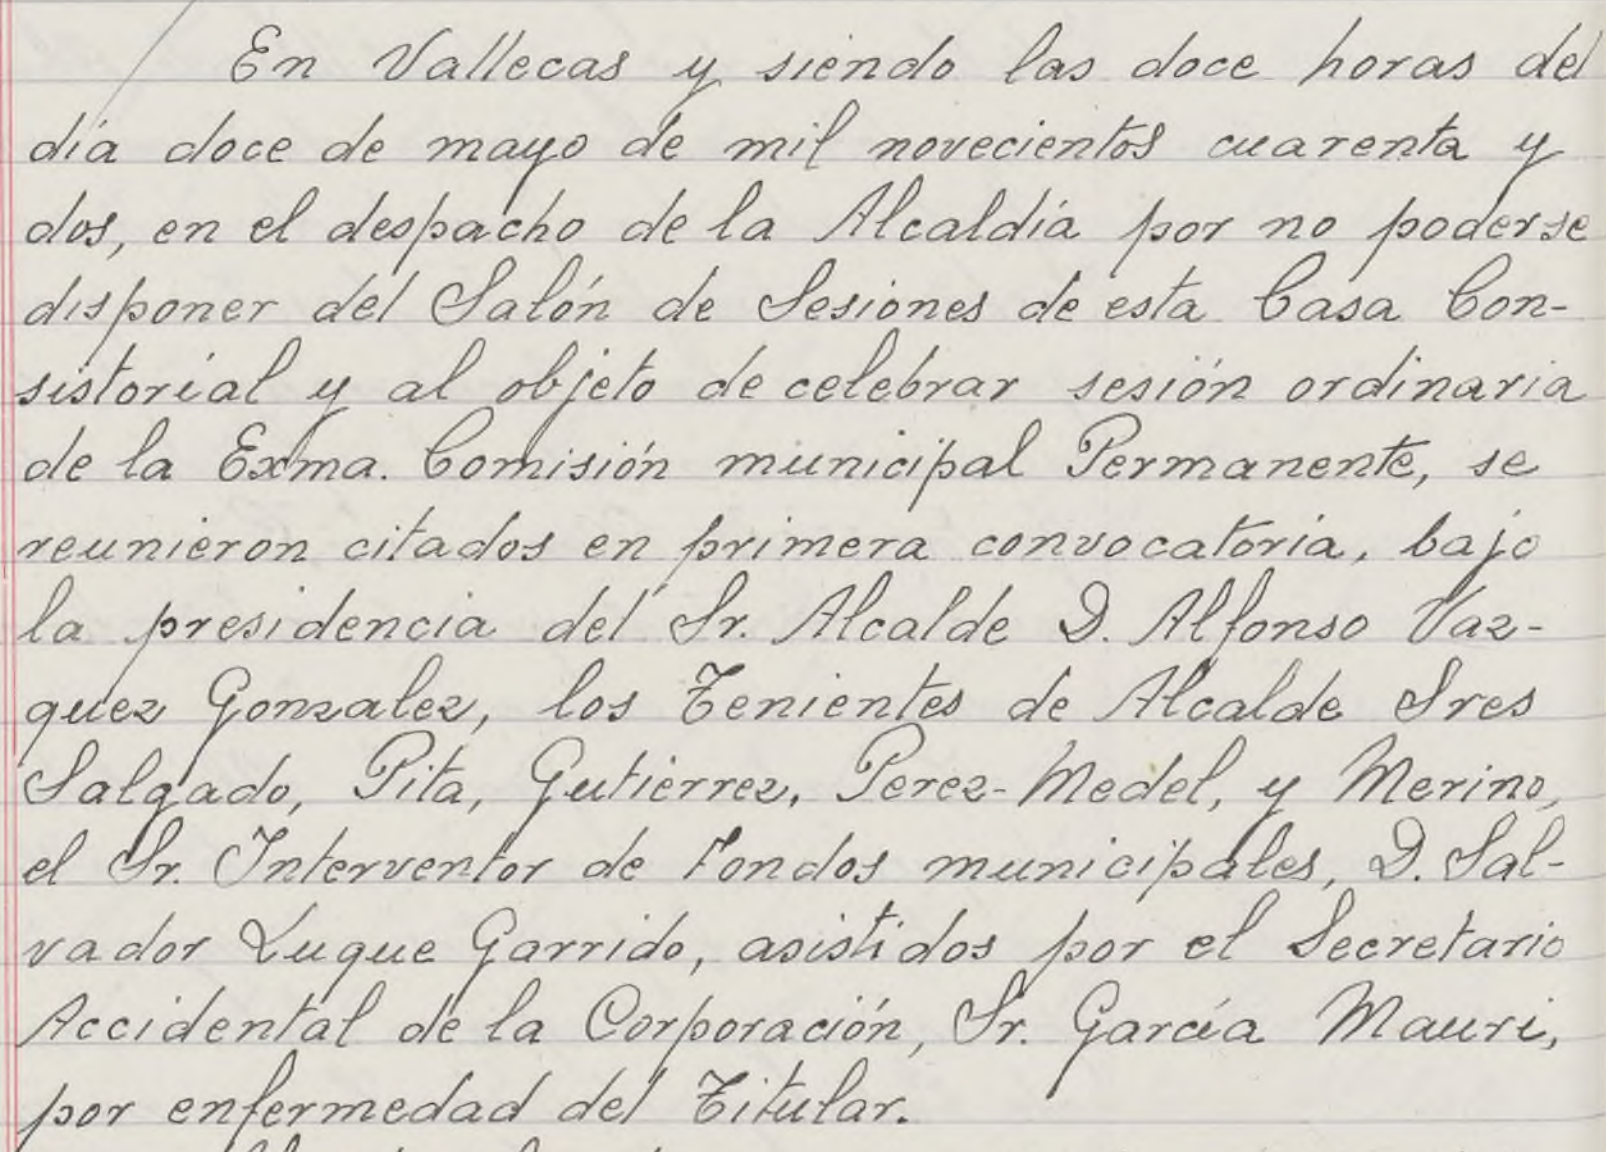 En Vallecas y siendo las doce horas del
día doce de mayo de mil novecientos cuarenta y
dos, en el despacho de la Alcaldía por no poderse
disponer del Salón de Sesiones de esta Casa Con-
sistorial y al objeto de celebrar sesión ordinaria
de la Exma. Comisión municipal Permanente, se
reunieron citados en primera convocatoria, bajo
la presidencia del Sr. Alcalde D. Alfonso Vaz-
quez Gonzalez, los Tenientes de Alcalde Sres
Salgado, Pita, Gutiérrez, Perez-Medel, y Merino,
el Sr. Interventor de Fondos municipales, D. Sal-
vador Luque Garrido, asistidos por el Secretario
Accidental de la Corporación, Sr. García Mauri,
por enfermedad del Titular.